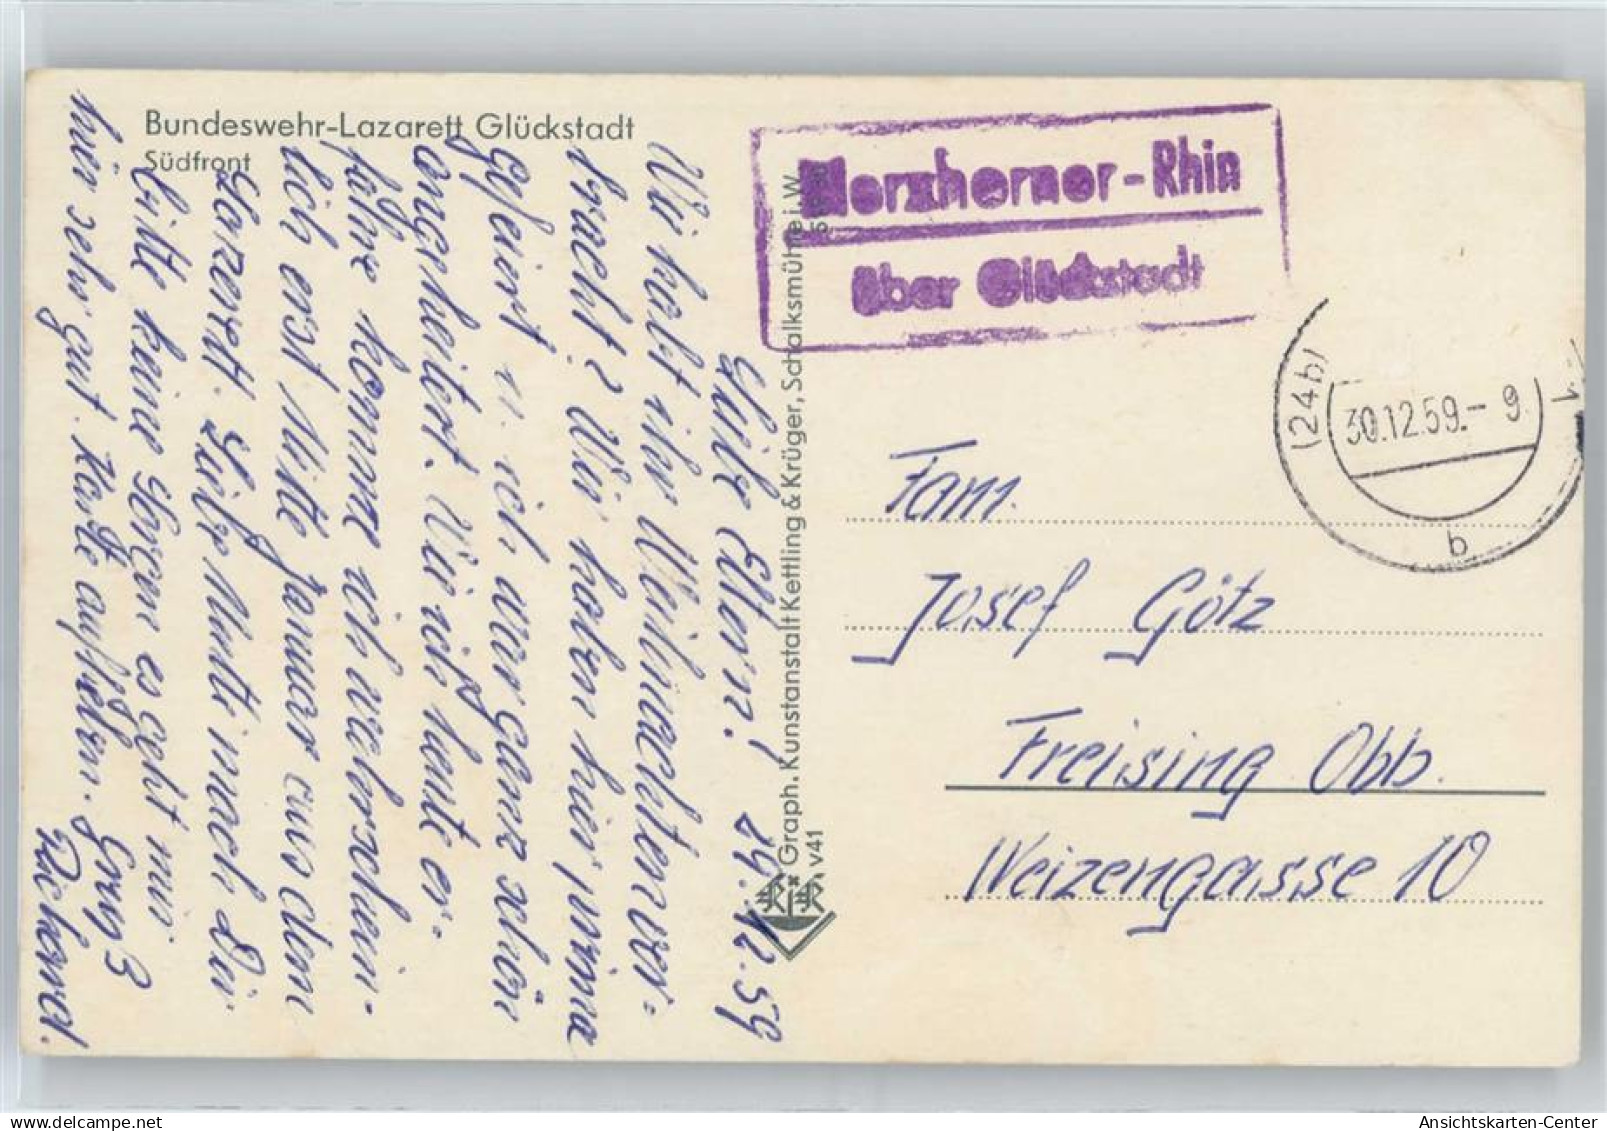 Bundeswehr-Lazarett Glückstadt
Südfront
Liebe Eltern! 29.12.59
Wie habt ihr Weihnachten ver-
bracht? Wir haben hier prima
gefeiert u. ich war ganz schön
angeheitert. Wie ich heute er-
fahre komme ich wahrschein-
lich erst Mitte Januar aus dem
Lazarett. Liebe Mutti mach Dir
bitte keine Sorgen es geht mir
hier sehr gut. Karte aufheben.
Richard.
Graph. Kunstanstalt Kettling & Krüger, Schalksmühle i. W.
v41
K&K
Herzhorner-Rhin
über Glückstadt
(24b)
30.12.59.-9
b
Fam.
Josef Götz
Freising Obb.
Weizengasse 10
Ansichtskarten-Center